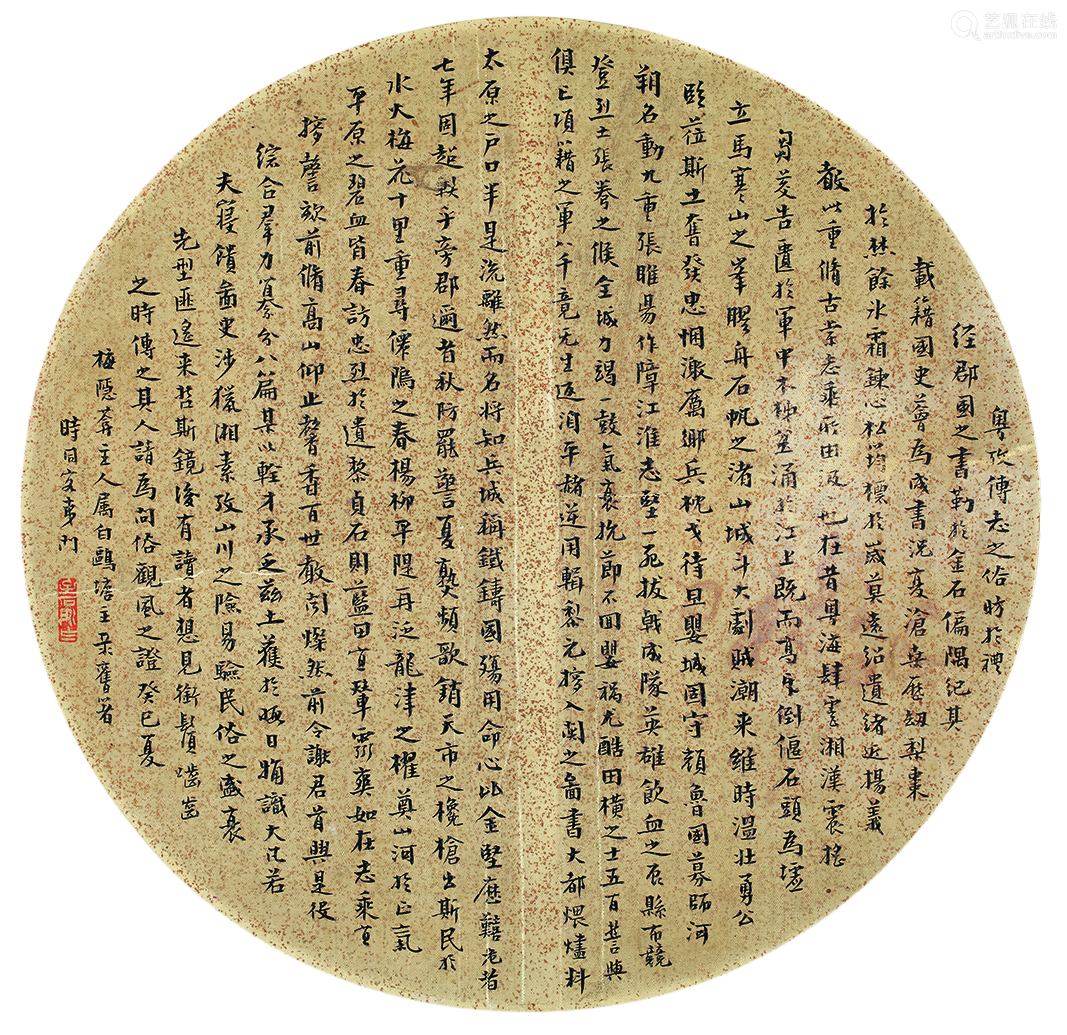 粤攷傳志之俗昉於禮
經郡國之書勒於金石偏隅紀其
載籍國史薈為成書況夏滄桑歷劫梨棗
於焚餘水霜鍊心松筠標於歲莫遠紹遺緒近揚義
敢此重脩古棠志乘所由汲也在昔粤海肆雲湘漢震搖
芻茭告匱於軍中木柿塞涌於江上既而高牙倒偃石頭為墟
立馬寒山之峯膠舟石帆之渚山城斗大劇賊潮來維時溫壯勇公
臨莅斯土奮發忠悃激厲鄉兵枕戈待旦嬰城固守顏魯國募師河
朔名動九重張睢陽作障江淮志堅一死拔戟成隊英雄飲血之辰縣布競
登烈士張拳之候全城力竭一鼓氣衰抗節不回嬰禍尤酷田橫之士五百誓與
俱亡項籍之軍八千竟无生返洎乎赭逆用輯黎元撩入閣之圖書大都煨燼料
太原之戶口半是流離然而名將知兵城稱鐵鑄國殤用命心比金堅歷囏危者
七年固超軼乎旁郡邇者秋防罷警夏蓺頻歌銷天市之欃槍出斯民於
水火梅花十里重尋僊隖之春楊柳平隄再泛龍津之櫂奠山河於正氣
平原之碧血皆春訪忠烈於遺黎貞石則藍田有草靈爽如在志乘有
待謦欬前脩高山仰止馨香百世敢闕燦然前令謝君首興是役
綜合羣力纂分八篇某以輇才承乏茲土蒐於晦日擕識大凡若
夫寢饋圖史涉獵湘素攷山川之險易驗民俗之盛衰
先型匪遙來哲斯鏡後有讀者想見銜鬚嚙齒
之時傳之其人請為問俗觀風之證癸巳夏
梅隱葊主人屬白鷗塘主朶舊署
時同客吏門
艺狐在线
artfoxlive.com